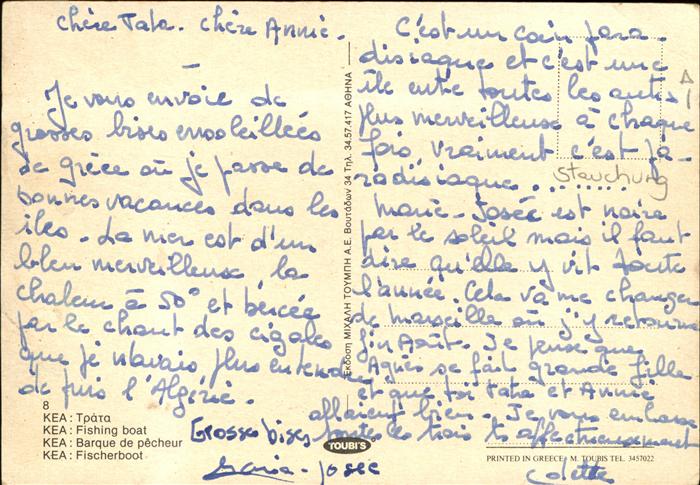 Chère Tata. Chère Annie.
Je vous envoie de
grosses bises ensoleillées
de grèce où je passe de
bonnes vacances dans les
îles. La mer est d'un
bleu merveilleux la
chaleur à 50° et bercée
par le chant des cigales
que je n'avais plus entendu
depuis l'Algérie.
8
KEA : Τράτα
KEA : Fishing boat
KEA : Barque de pêcheur
KEA : Fischerboot
Grosses bises
Maria-Josee
Έκδοση ΜΙΧΑΛΗ ΤΟΥΜΠΗ Α.Ε. Βουτάδων 34 Τηλ. 34.57.417 ΑΘΗΝΑ
TOUBI'S
C'est un coin para-
disiaque et c'est une
île entre toutes les autres
plus merveilleuse à chaque
fois vraiment c'est pa-
radisiaque........
Stauchung
Marie-Josée est noire
par le soleil mais il faut
dire qu'elle y vit toute
l'année. Cela va me changer
de marseille où j'y retourne
fin Août. Je pense que
Agnès se fait grande fille
et que toi tata et Annie
allaient bien. Je vous embrasse
toutes les trois très affectueusement
PRINTED IN GREECE M. TOUBIS TEL. 3457022
Colette